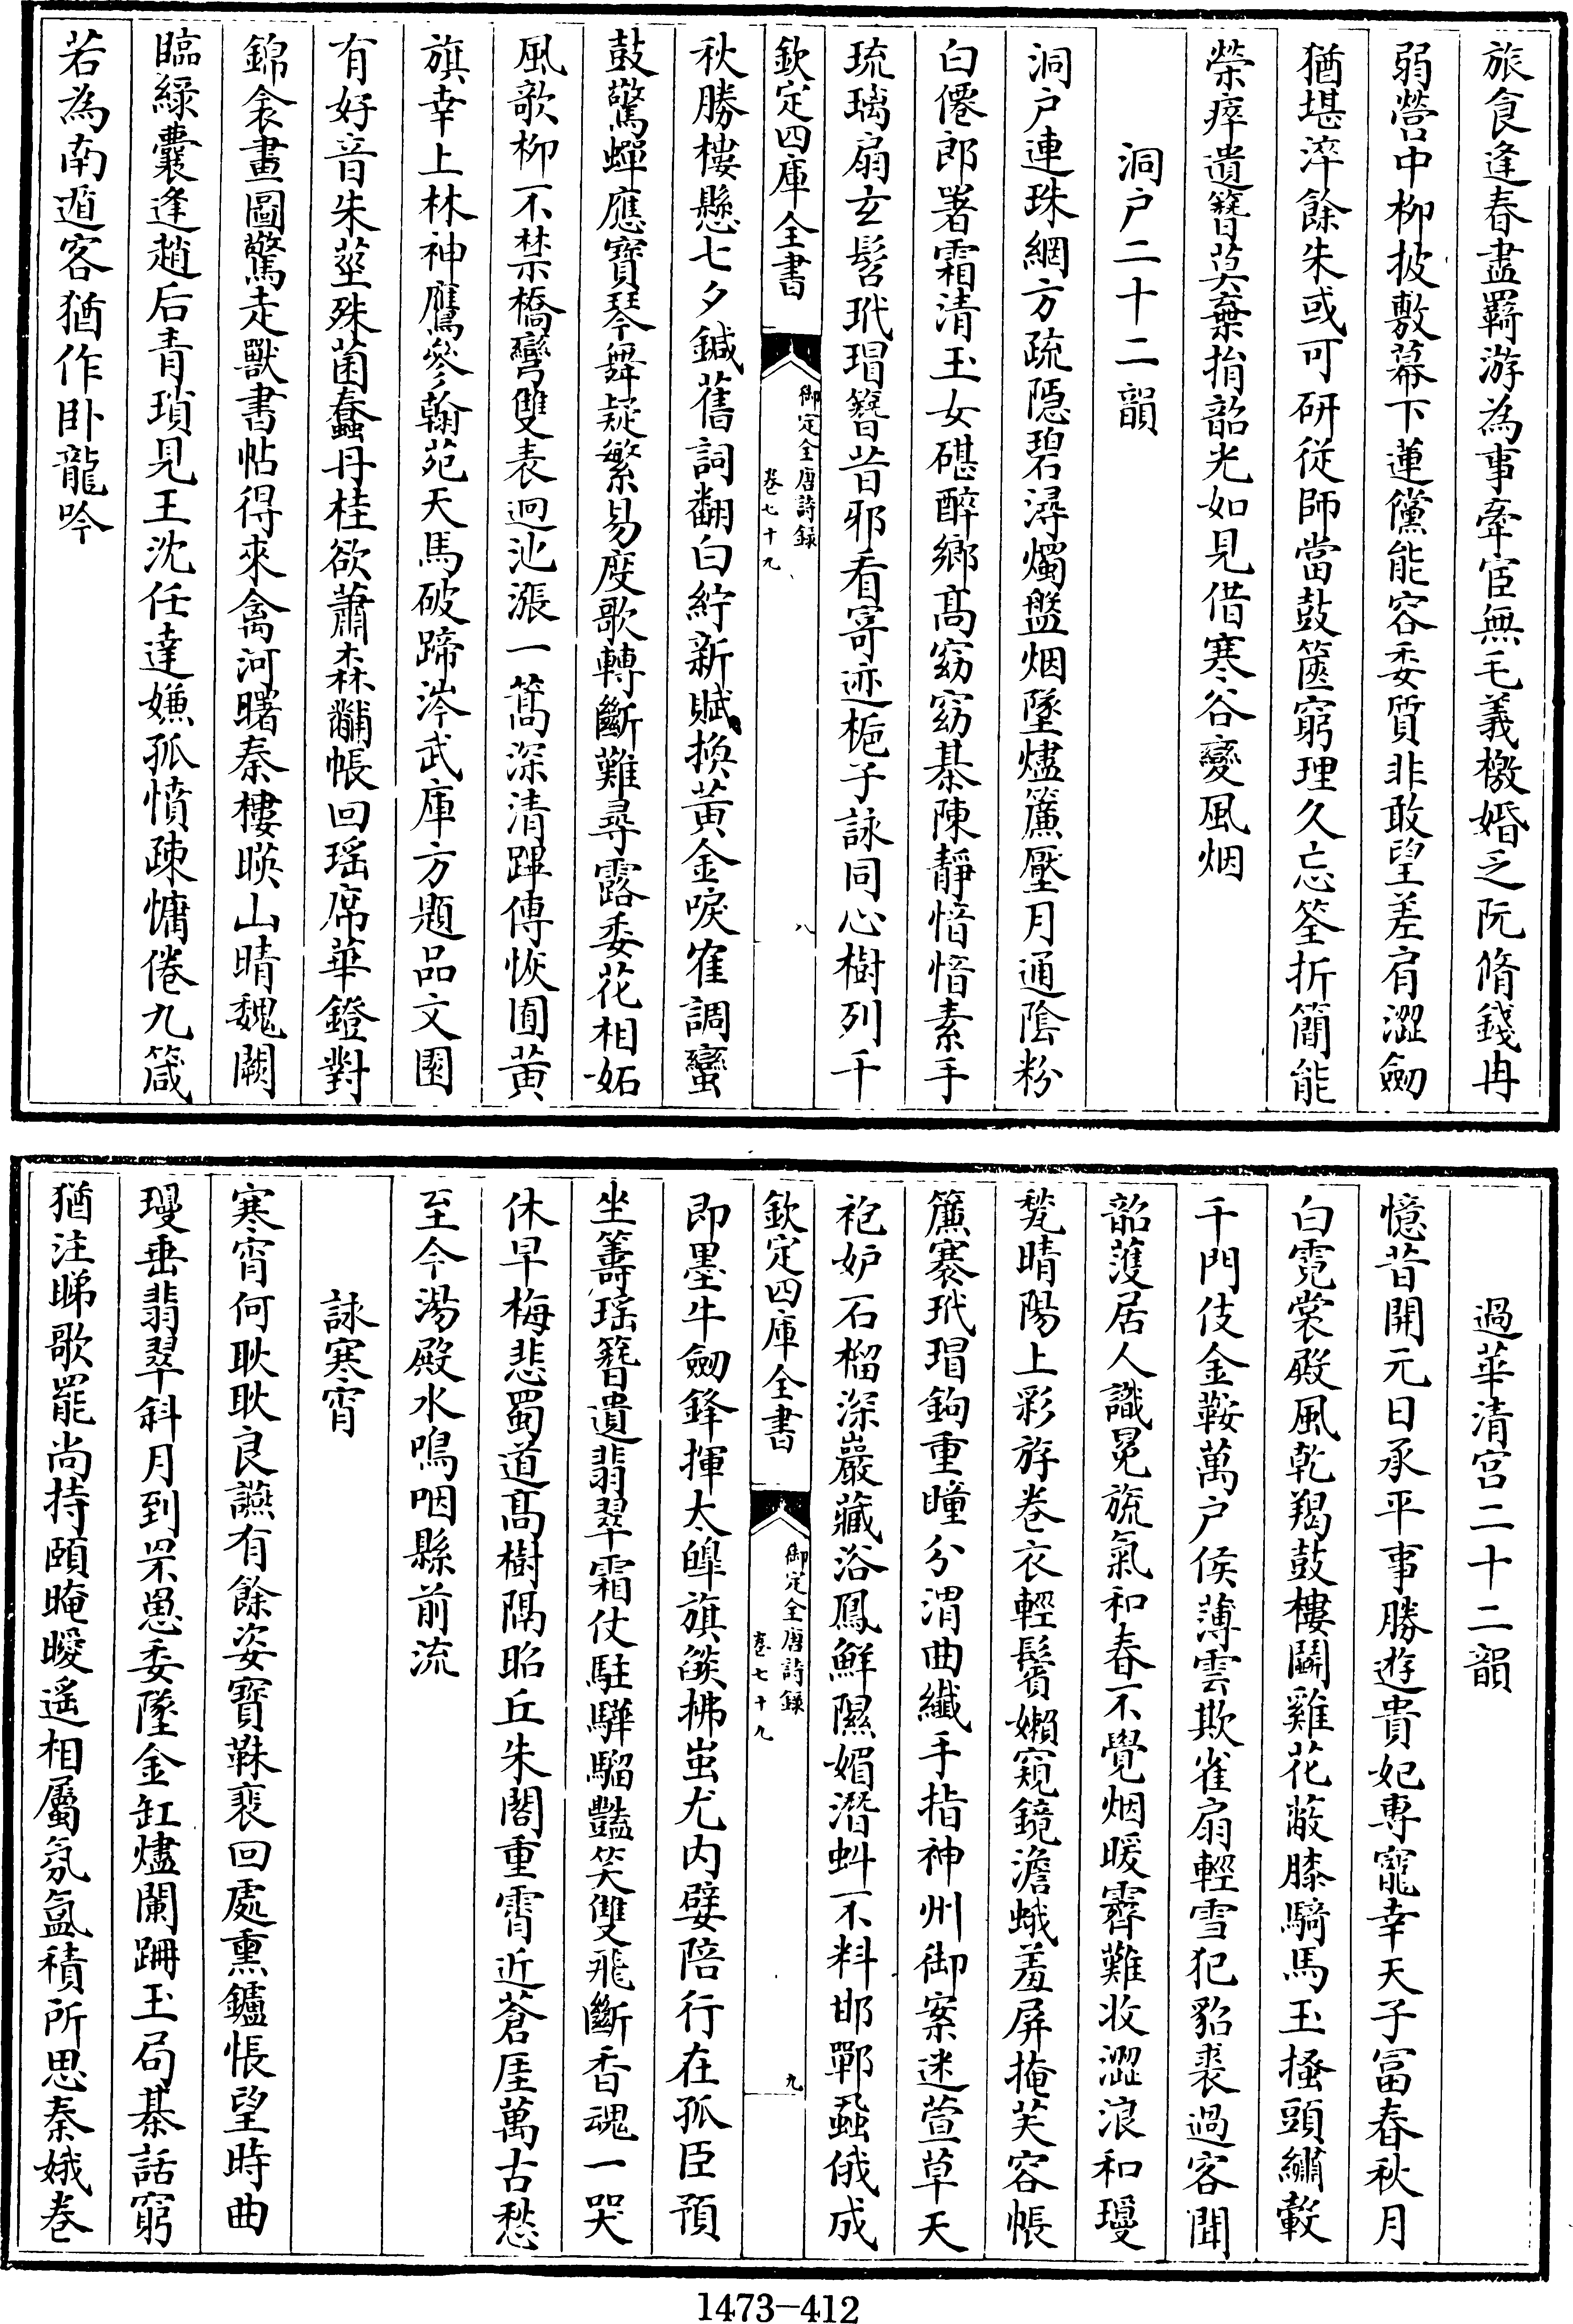 旅食逢春盡羇游為事牽宦無毛義檄婚乏阮脩錢冉
弱營中柳披敷幕下蓮儻能容委質非敢望差肩澀劒
猶堪淬餘朱或可研從師當鼓篋窮理久忘筌折簡能
榮瘁遺簪莫棄捐韶光如見借寒谷變風烟
洞户二十二韻
洞户連珠網方疏隱碧潯燭盤烟墜燼簾壓月通陰粉
白僊郎署霜清玉女碪醉鄉髙窈窈棊陳靜愔愔素手
琉璃扇玄髫玳瑁簪昔邪看寄迹梔子詠同心樹列千
欽定四庫全書
御定全唐詩錄
卷七十九
八
秋勝樓懸七夕鍼舊詞翻白紵新賦換黃金唳隺調蠻
鼓驚蟬應寶琴舞疑繁易度歌轉斷難尋露委花相妬
風歌柳不禁橋彎雙表迥池漲一篙深清蹕傳恢囿黃
旗幸上林神鷹參翰苑天馬破蹄涔武庫方題品文園
有好音朱莖殊菌蠢丹桂欲蕭森黼帳回瑤席華鐙對
錦衾畫圖驚走獸書帖得來禽河曙秦樓暎山晴魏闕
臨緑囊逢趙后青瑣見王沈任達嫌孤憤疎慵倦九箴
若為南遁客猶作卧龍吟
過華清宫二十二韻
憶昔開元日承平事勝遊貴妃專寵幸天子富春秋月
白霓裳殿風乾羯鼓樓鬬雞花蔽膝騎馬玉搔頭繡轂
千門伎金鞍萬户侯薄雲欺雀扇輕雪犯貂裘過客聞
韶濩居人識冕旒氣和春不覺烟暖霽難收澀浪和瓊
甃晴陽上彩斿卷衣輕鬢嬾窺鏡澹蛾羞屏掩芙容帳
簾褰玳瑁鉤重瞳分渭曲纖手指神州御案迷萱草天
袍妒石榴深巖藏浴鳳鮮隰媚潛虯不料邯鄲蝨俄成
欽定四庫全書
御定全唐詩錄
卷七十九
九
即墨牛劒鋒揮太皥旗燄拂蚩尤内嬖陪行在孤臣預
坐籌瑤簪遺翡翠霜仗駐驊騮豔笑雙飛斷香魂一哭
休早梅悲蜀道髙樹隔昭丘朱閣重霄近蒼厓萬古愁
至今湯殿水鳴咽縣前流
詠寒宵
寒宵何耿耿良讌有餘姿寶靺裵回處熏鑪悵望時曲
瓊垂翡翠斜月到罘罳委墜金缸燼闌跚玉局棊話窮
猶注睇歌罷尚持頤晻曖遥相屬氛氲積所思秦娥卷
1473-412